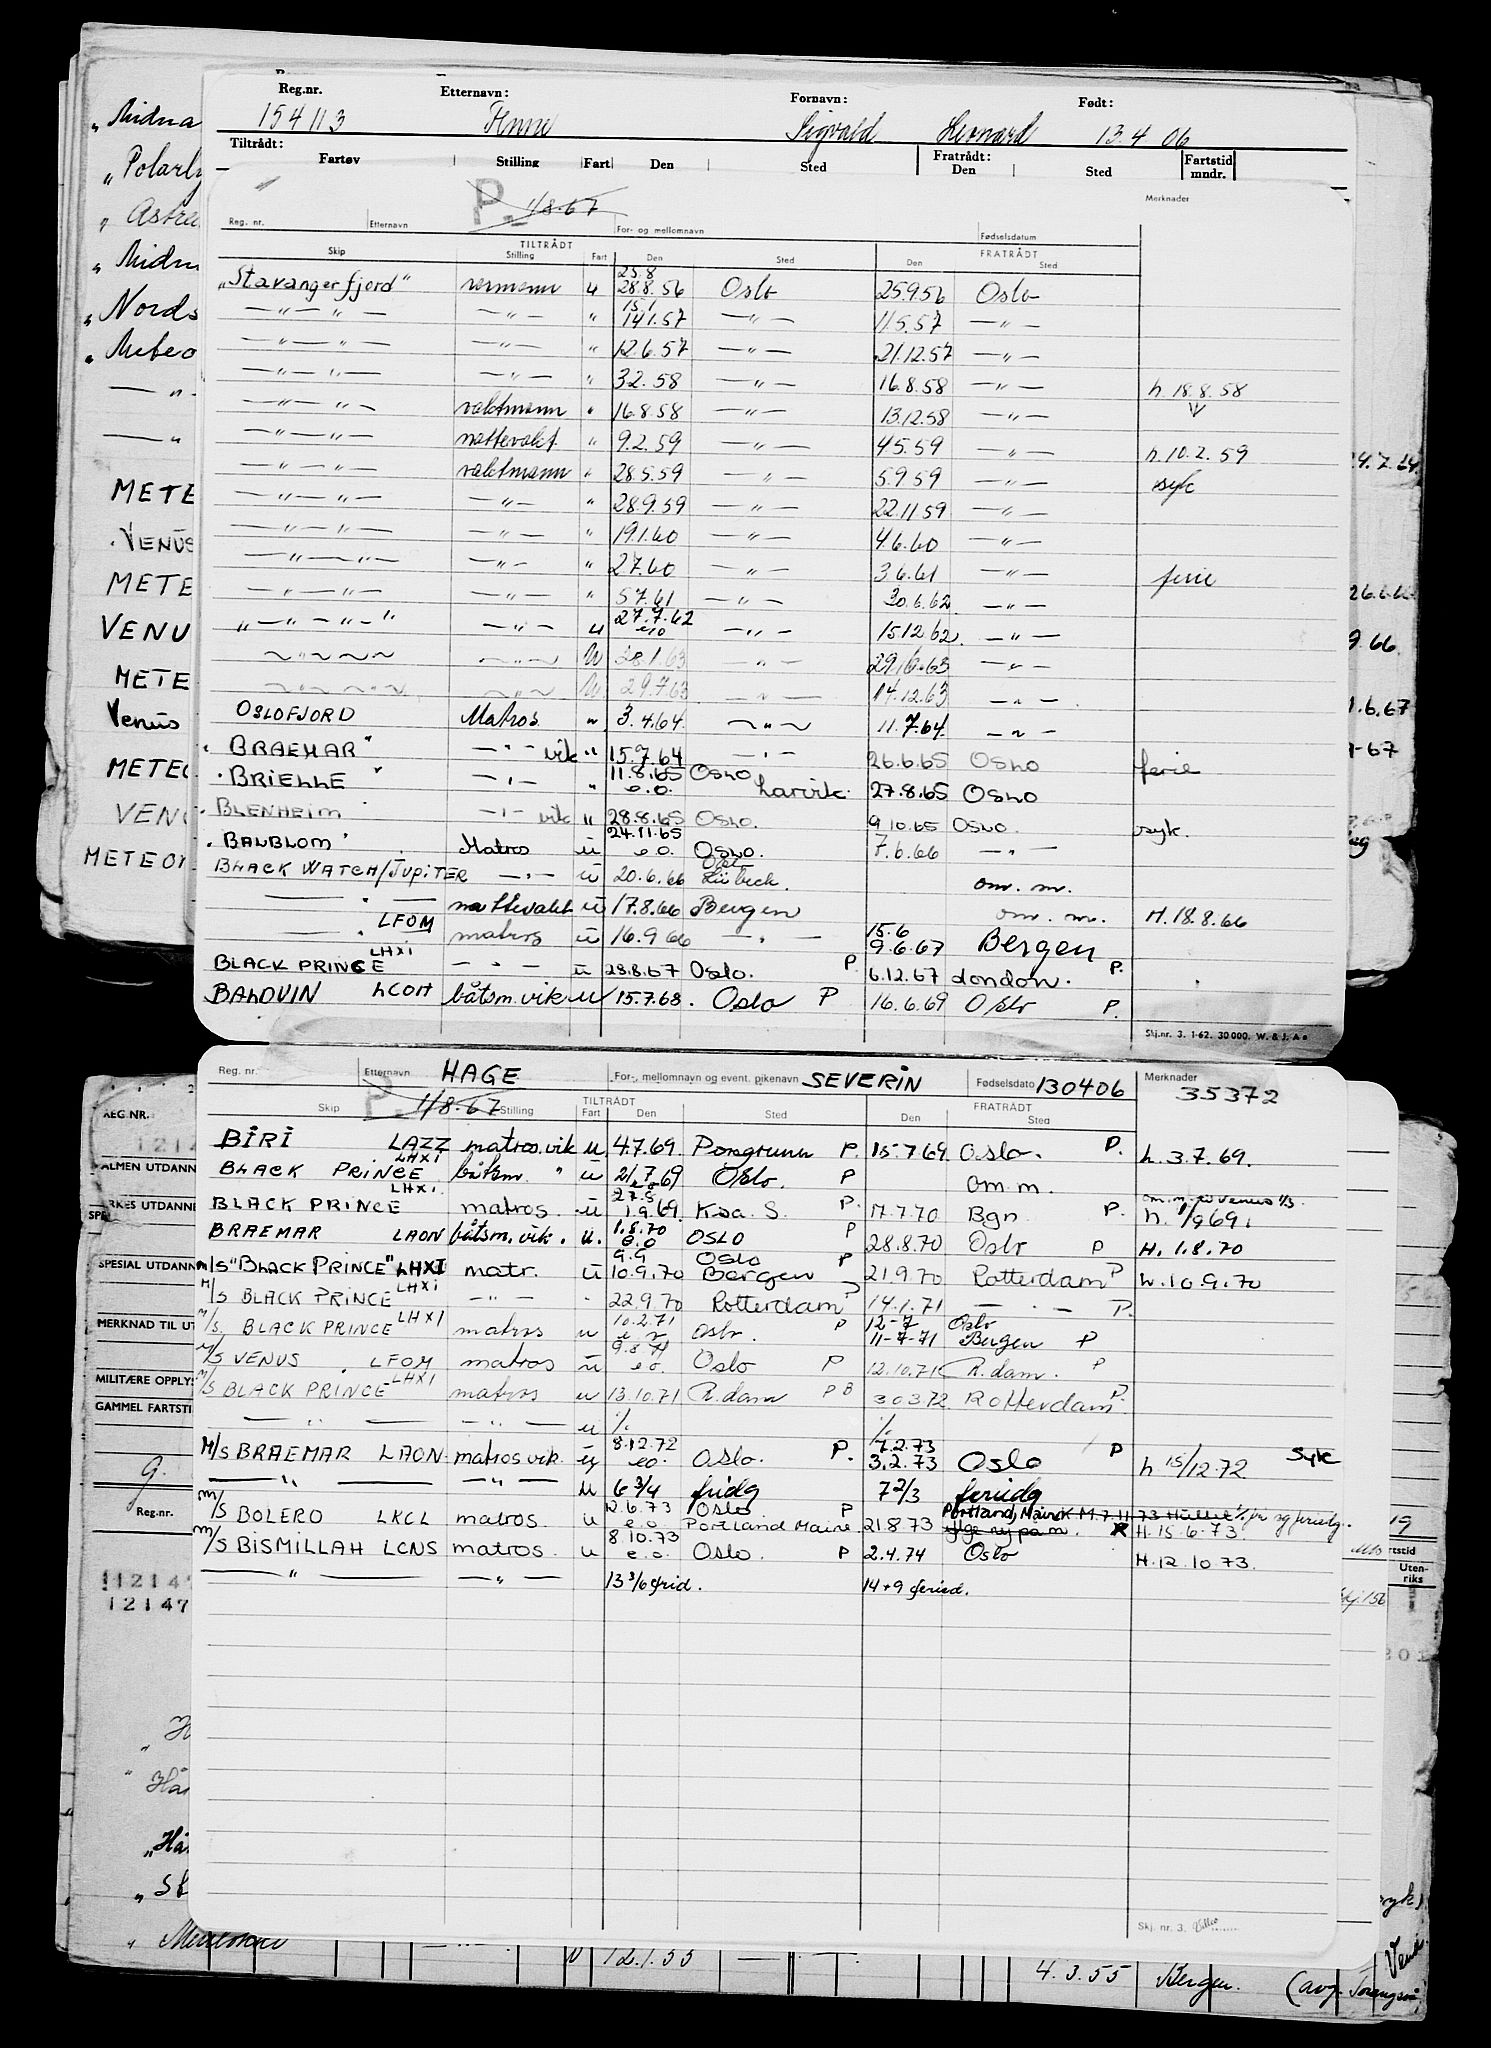 Reg.nr. Etternavn: Fornavn: Født:
154113 Sigvald Leonard 13.4 06
Tiltrådt: Fratrådt: Fartstid
Fartøy Stilling Fart Den Sted Den Sted mndr.
Merknader
P. 1/8-67
Reg. nr. Etternavn For- og mellomnavn Fødselsdatum
TILTRÅDT FRATRÅDT
Skip Stilling Fart Den Sted Den Sted
25.8
"Stavangerfjord" u 28.8.56 Oslo 25.9.56 Oslo
15.1
— " — " — — " — " 14.1.57 — " — 11.5.57 — " —
— " — " — — " — " 12.6.57 — " — 21.12.57 — " —
— " — " — — " — " 3.2.58 — " — 16.8.58 — " — h. 18.8.58
— " — " — vaktmann " 16.8.58 — " — 13.12.58 — " —
— " — " — nattevakt " 9.2.59 — " — 4.5.59 — " — h. 10.2.59
— " — " — vaktmann " 28.5.59 " — 5.9.59 — " — syk
— " — " — — " — " 28.9.59 — " — 22.11.59 — " —
— " — " — — " — " 19.1.60 — " — 4.6.60 — " —
— " — " — — " — " 2.7.60 — " — 3.6.61 — " — ferie
— " — " — — " — " 5.7.61 — " — 30.6.62 — " —
" — " — " — " — " — u 27.7.62 e.o — " — 15.12.62 — " —
— " — " — — " — u 28.1.63 — " — 29.6.63 — " —
— " — " — — " — u 29.7.63 — " — 14.12.63 — " —
OSLOFJORD Matros " 3.4.64 — " — 11.7.64 — " —
"BRAEMAR" — " — vik " 15.9.64 — " — 26.6.65 OSLO ferie
"BRIELLE" — " — " 11.8.65 e.o. OSLO Larvik 27.8.65 OSLO
BLENHEIM — " — vik " 28.8.65 OSLO. 9.10.65 OSLO. syk.
"BALBLOM" Matros u 24.11.65 e.o. OSLO. 7.6.66 — " —
BLACK WATCH/JUPITER — " — u 20.6.66 Oslo Lübeck. om. m.
— " — nattevakt u 17.8.66 Bergen om. m. H. 18.8.66
— " — LFOM matros u 16.9.66 — " — 15.6 9.6.67 Bergen
BLACK PRINCE LHXI — " — u 28.8.67 Oslo. P. 6.12.67 London. P.
BALDVIN LCOH båtsm. vik u 15.7.68. Oslo P 16.6.69 Oslo P.
Skj.nr. 3. 1-62. 30 000. W. & J. A s
Reg. nr. Etternavn HAGE For-, mellomnavn og event. pikenavn SEVERIN Fødselsdato 130406 Merknader 35372
P. 1/8-67
TILTRÅDT FRATRÅDT
Skip Stilling Fart Den Sted Den Sted
BIRI LAZZ matros.vik u 4.7.69. Porsgrunn P. 15.7.69. Oslo. P. h. 3.7.69.
BLACK PRINCE LHXI båtsm " u 21.7.69 e.o Oslo. P om m.
BLACK PRINCE LHXI. matros. u 27.8 1.9.69. Ksa. S. P. 17.7.70 Bgn P. h. 1/9 69.
BRAEMAR LAON båtsm. vik. u. 1.8.70 e.o OSLO P 28.8.70 Oslo P H. 1.8.70
M/S "BLACK PRINCE" LHXI matr. u 9.9 10.9.70 Oslo Bergen P 21.9.70 Rotterdam P h. 10.9.70
M/S BLACK PRINCE LHXI — " — " 22.9.70 Rotterdam P 14.1.71 — " — P.
M/S. BLACK PRINCE LHXI matros u 10.2.71 e.o Oslo. P 12-7 11-7-71 Oslo Bergen P
M/S VENUS LFOM matros u 9.8.71 e.o. Oslo P 12.10.71 R.dam. P
M/S BLACK PRINCE LHXI matros u 13.10.71 R.dam P B 30.3.72 Rotterdam P.
— " — — " — u %. %.
M/S BRAEMAR LAON matros vik. u 8.12.72 e.o. Oslo. P. 7.2.73 3.2.73 Oslo P h 15/12.72 Syk
— " — — " — u 6 3/4 fridg 7 2/3 feriedg
M/S BOLERO LKCL matros. u 12.6.73 e.o. Oslo Portland Maine P 21.8.73 Portland, Maine H. 15.6.73.
M/S BISMILLAH LCNS matros. u 8.10.73 e.o. Oslo. P 2.4.74 Oslo H. 12.10.73.
— " — — " — 13 3/6 frid. 14+9 feried.
Skj. nr. 3.
"Midna
"Polarly
"Midn
"Nords
"Meteo
— " -
— "
METE
VENUS
METE
VENU
METE
Venus
METEO
VENU
METEOR
REG.NR.
1214
ALMEN UTDANN
RKES UTDANNE
SPECIAL UTDANN
MERKNAD TIL UT
MILITÆRE OPPLYS
GAMMEL FARTSTI
9.
Reg.nr.
112147
12147
26.6.6
9.66.
1.6.67
19
rtstid
Uten-
riks
u 12.1.55 — 4.3.55 Bergen.